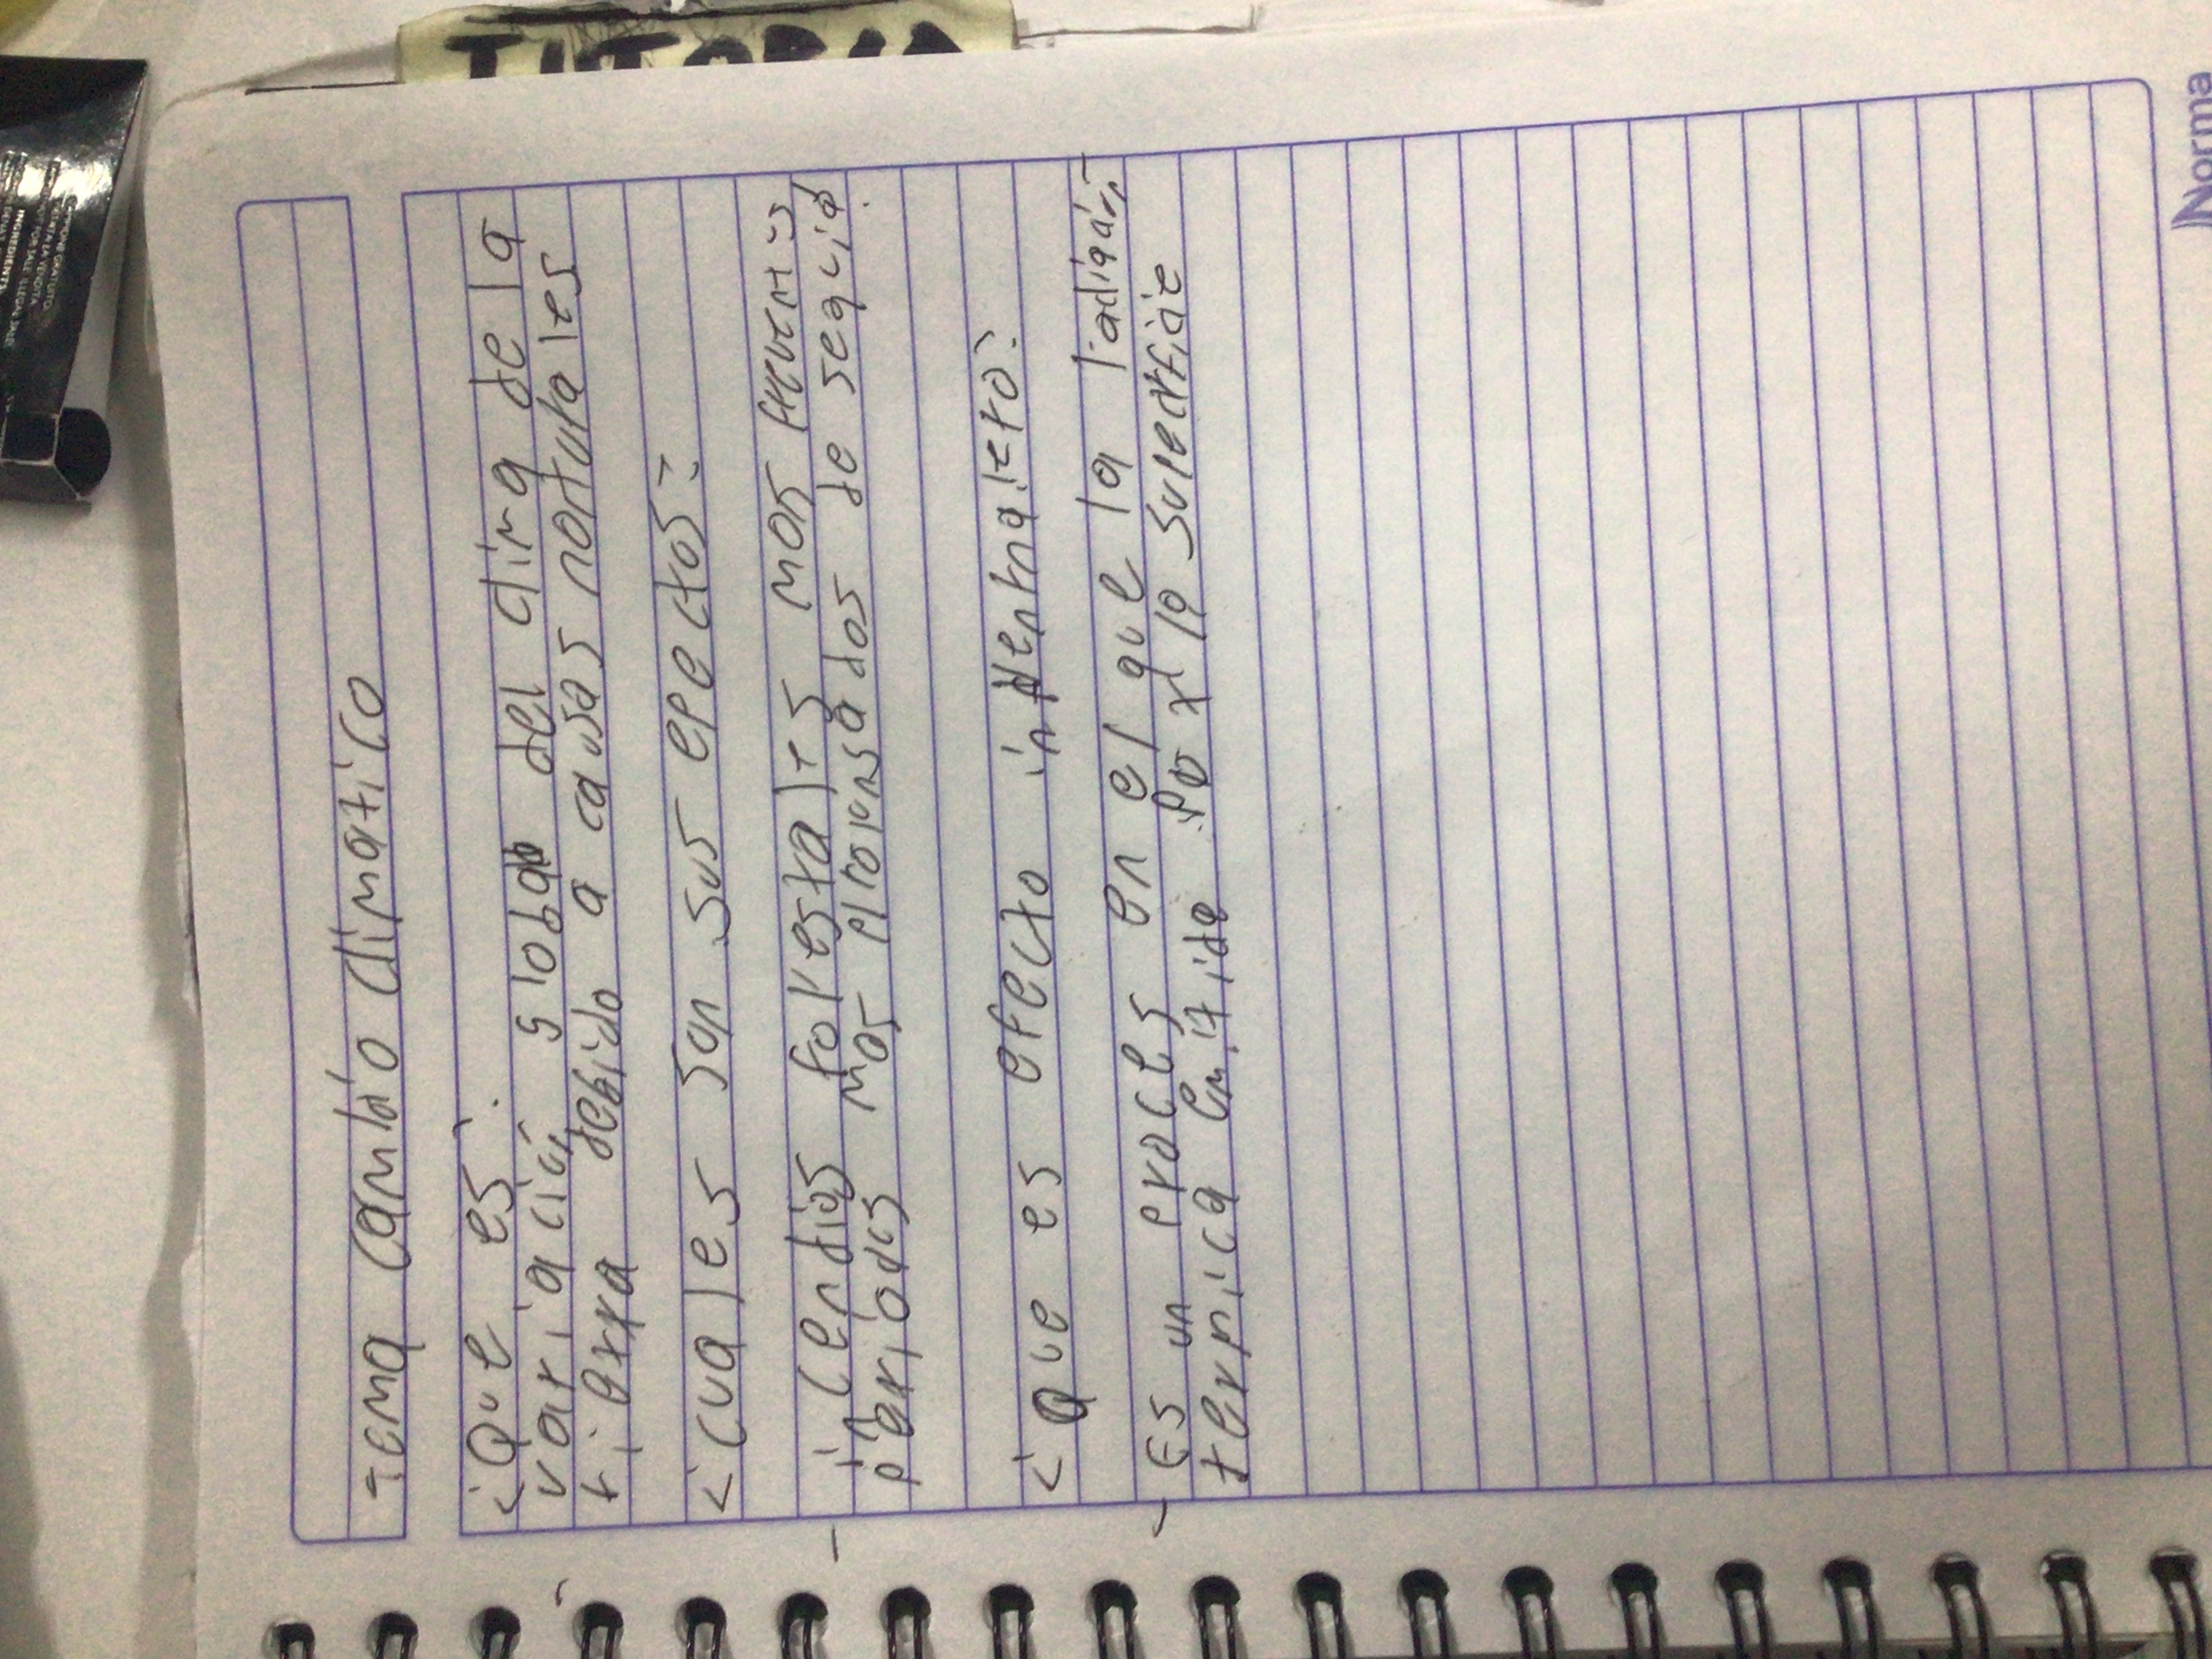 TUTORIA
tema Cambio climatico
¿Que es?
variación global del clima de la
tierra debido a causas naturales
¿cuales son sus epectos?
incendios forestales mas
periodos mas de seguia
¿Que es efecto invernadero?
- Es un proces en el que la radiación
termica emitida por la superficie
Norma
INGREDIENTI